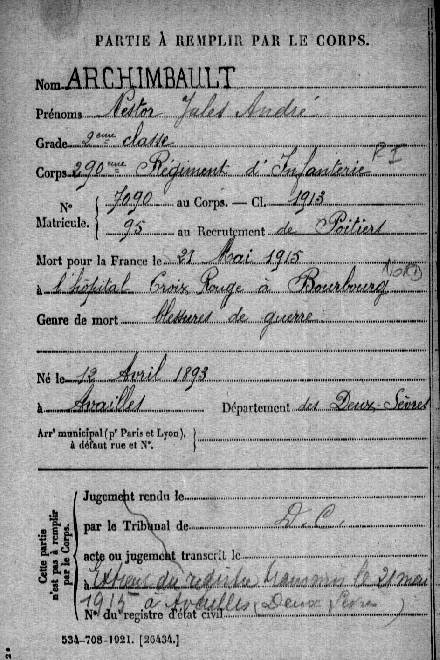 PARTIE À REMPLIR PAR LE CORPS.
Nom ARCHIMBAULT
Prénoms Nestor Jules André
Grade 2eme classe
Corps 290eme Régiment d'Infanterie RI
N° Matricule. { 7090 au Corps. — Cl. 1913
95 au Recrutement de Poitiers
Mort pour la France le 21 Mai 1915
à l'hôpital Croix Rouge à Bourbourg (Nord)
Genre de mort blessures de guerre
Né le 12 Avril 1893
à Availles Département des Deux Sèvres
Arrt municipal (pr Paris et Lyon), à défaut rue et N°. }
Cette partie n'est pas à remplir par le Corps.
Jugement rendu le
par le Tribunal de D.C.
acte ou jugement transcrit le
à Extrait du registre transmis le 21 mai
1915 à Availles (Deux Sèvres)
N° du registre d'état civil
534-708-1921. [26434.]